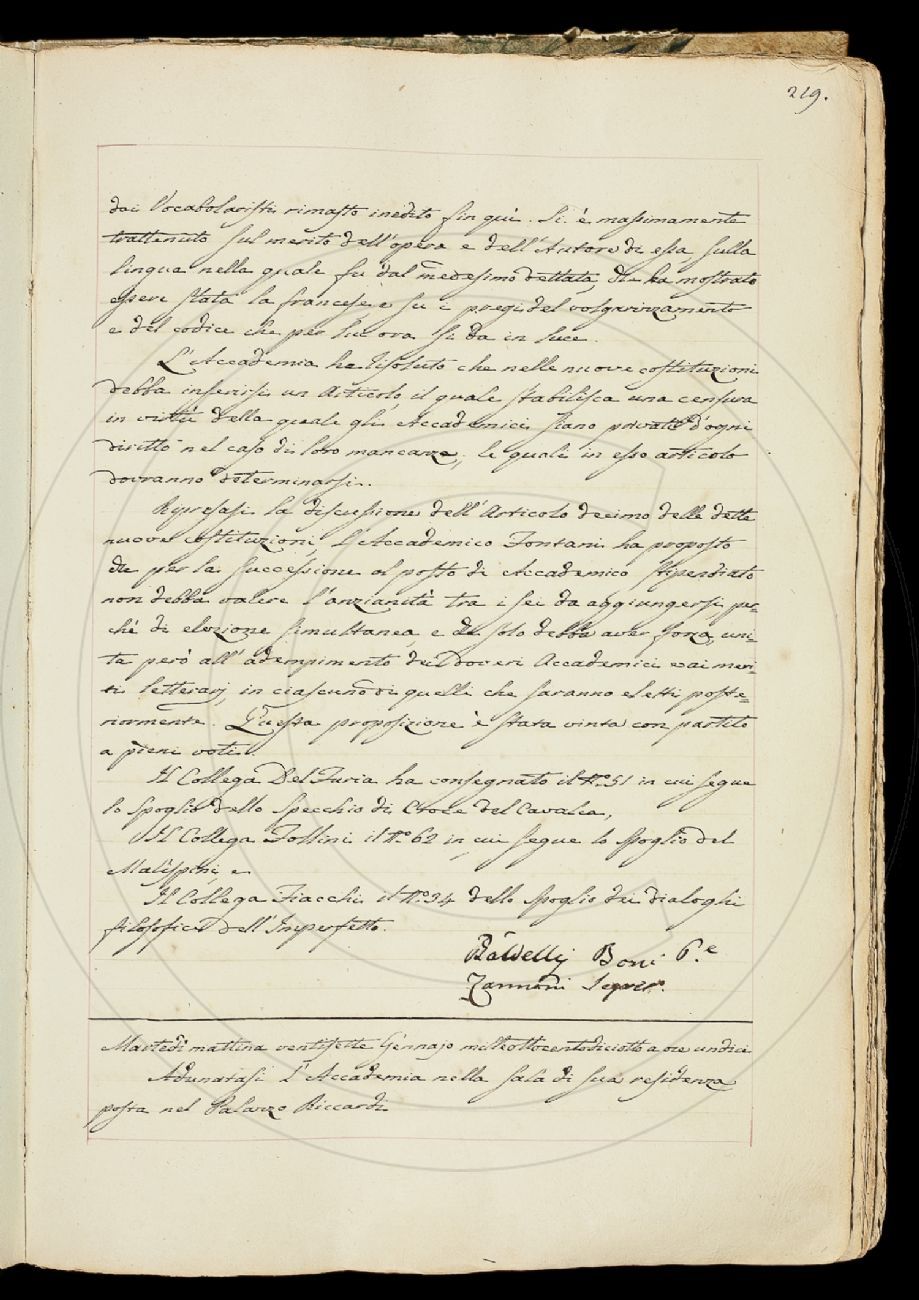 219.
dai Vocabolaristi rimasto inedito fin quì. Si è massimamente
trattenuto sul merito dell'opera e dell'Autore di essa sulla
lingua nella quale fu dal medesimo dettata, che ha mostrato
essere stata la francese, e su i pregi del volgarizzamento
e del codice che per lui ora si dà in luce.
L'Accademia ha risoluto che nelle nuove costituzioni
debba inserirsi un Articolo, il quale stabilisca una censura
in virtù della quale gli Accademici siano privati d'ogni
diritto nel caso di loro mancanze, le quali in esso articolo
dovranno determinarsi.
Ripresasi la discussione dell'Articolo decimo delle dette
nuove costituzioni, l'Accademico Fontani ha proposto
che per la successione al posto di Accademico stipendiato
non debba valere l'anzianità tra i sei da aggiungersi, per-
chè di elezione simultanea, e che solo debba aver forza, uni-
ta però all'adempimento dei doveri Accademici e ai meri-
ti letterarj, in ciascuno di quelli che saranno eletti poste-
riormente. Questa proposizione è stata vinta con partito
a pieni voti.
Il Collega Del Furia ha consegnato il N.o 51 in cui segue
lo Spoglio dello Specchio di Croce del Cavalca,
Il Collega Follini il N.o 62 in cui segue lo spoglio del
Malispini, e
Il Collega Fiacchi il N.o 34 dello spoglio dei dialoghi
filosofici dell'Imperfetto.
Baldelli Boni P.e
Zannoni Segret.
Martedì mattina ventisette Gennajo milleottocentodiciotto a ore undici
Adunatasi l'Accademia nella sala di sua residenza
posta nel Palazzo Riccardi